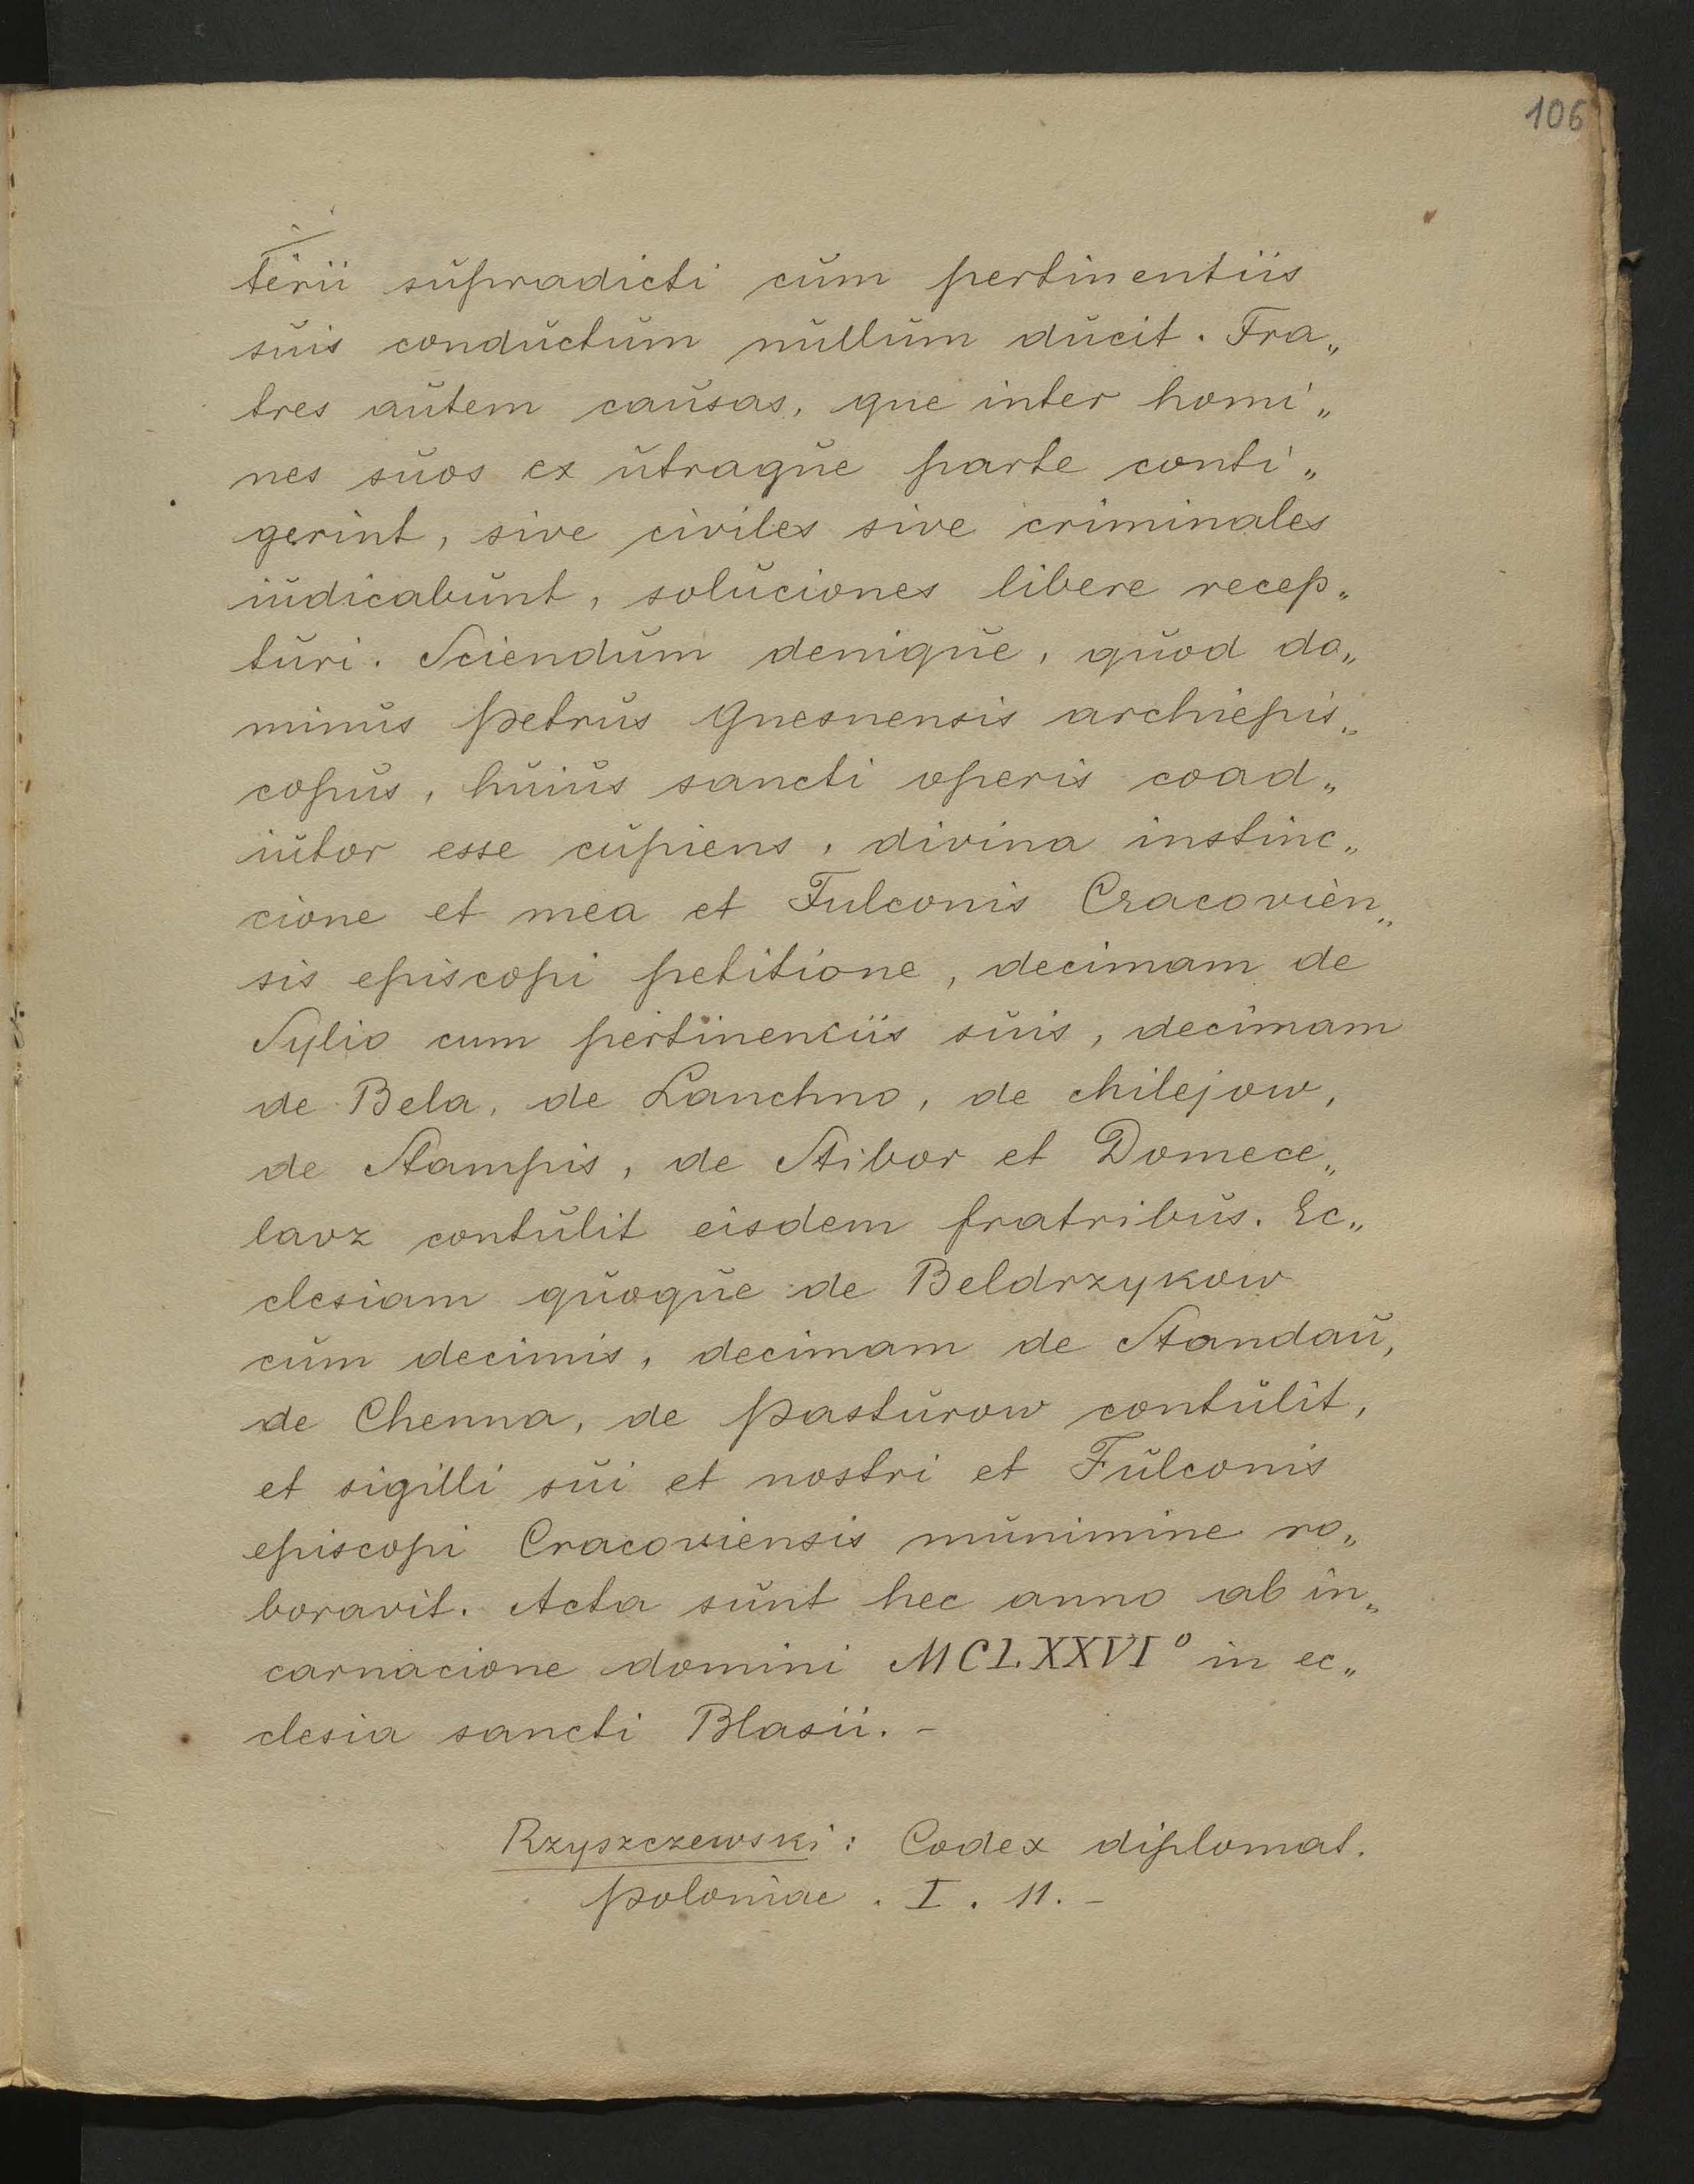 106
terii supradicti cum pertinentiis
suis conductum nullum ducit. Fra„
tres autem causas, que inter homi„
nes suos ex utraque parte conti„
gerint, sive civiles sive criminales
iudicabunt, soluciones libere recep„
turi. Sciendum denique, quod do„
minus Petrus Gnesnensis archiepis„
copus, huius sancti operis coad„
iutor esse cupiens, divina instinc„
cione et mea et Fulconis Cracovien„
sis episcopi petitione, decimam de
Sylio cum pertinenciis suis, decimam
de Bela, de Lanchno, de Milejow,
de Stampis, de Stibor et Domece„
lavz contulit eisdem fratribus. Ec„
clesiam quoque de Beldrzykow
cum decimis, decimam de Standau,
de Chenna, de Pasturow contulit,
et sigilli sui et nostri et Fulconis
episcopi Cracoviensis munimine ro„
boravit. Acta sunt hec anno ab in„
carnacione domini MCLXXVI° in ec„
clesia sancti Blasii. –
Rzyszczewski: Codex diplomat.
Poloniae. I. 11. –